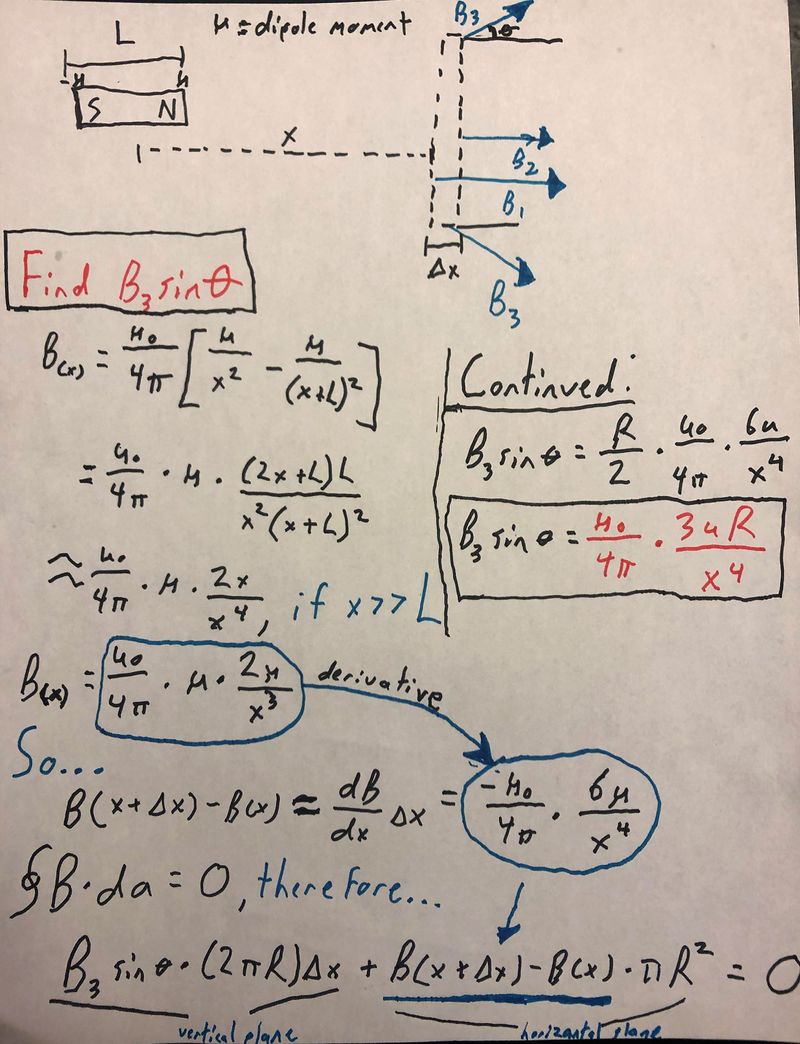 L
μ = dipole moment
-μ μ
S N
x
B₃
θ
B₂
B₁
Δx
B₃
Find B₃ sinθ
B(x) = μ₀/4π [μ/x² - μ/(x+L)²]
= μ₀/4π · μ · (2x+L)L/x²(x+L)²
≈ μ₀/4π · μ · 2x/x⁴, if x >> L
B(x) = μ₀/4π · μ · 2μ/x³
derivative
So...
B(x+Δx) - B(x) ≈ dB/dx Δx = -μ₀/4π · 6μ/x⁴
∮B·da = 0, therefore...
B₃ sinθ · (2πR)Δx + B(x+Δx) - B(x) · πR² = 0
vertical plane horizontal plane
Continued:
B₃ sinθ = R/2 · μ₀/4π · 6μ/x⁴
B₃ sinθ = μ₀/4π · 3μR/x⁴